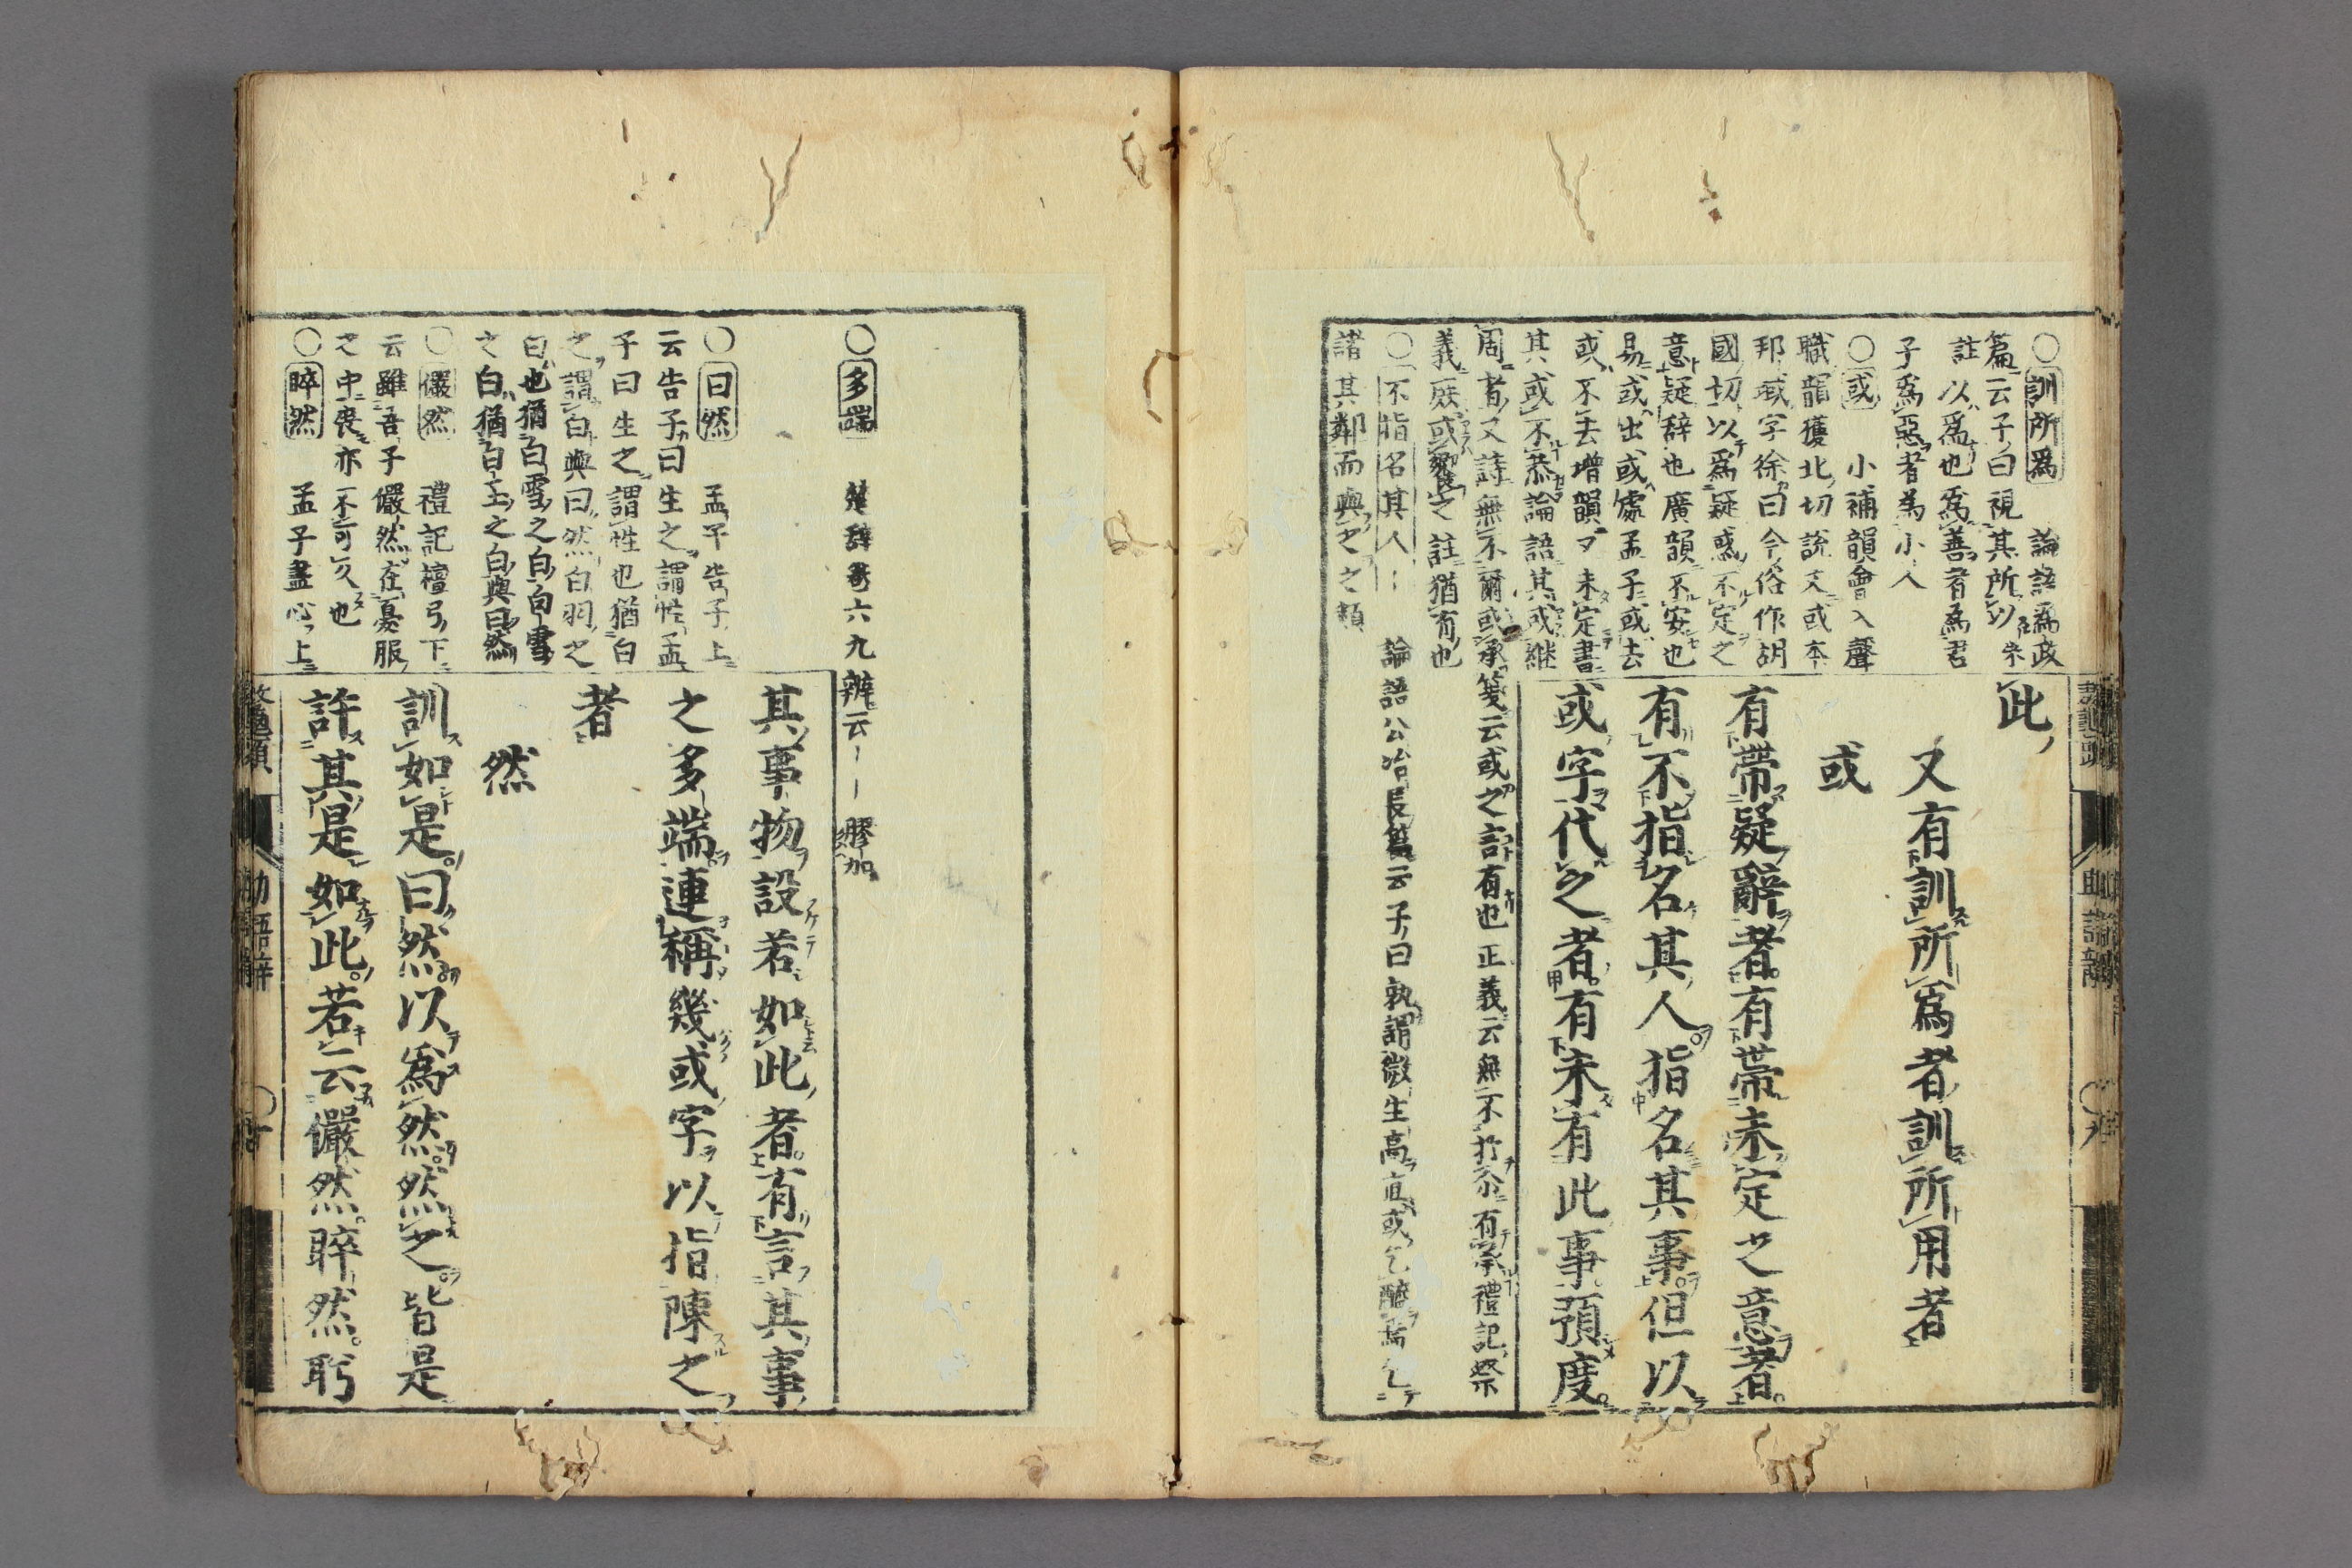 ○訓所爲 論語爲政
篇云子曰視其所以 朱
註以爲也爲善者爲君
子爲惡者爲小人
○或 小補韻會入聲
職韻獲北切説文或本
邦域字徐曰今俗作胡
國切以爲疑惑不定之
意疑辞也廣韻不安也
易或出或處孟子或去
或不去增韻又未定書
其或不恭論語其或継
周者又詩無不爾或承箋云或之言有也正義云無不於尒有承禮記祭
義庶或饗之註猶有也
○不指名其人 論語公冶長篇云子曰孰謂微生高直或乞醯焉乞
諸其鄰而與之之類
此
又有訓所爲者訓所用者
或
有帶疑辭者有帶未定之意者
有不指名其人指名其事但以
或字代之者有未有此事預度
○多端 楚辞卷六九辨云 膠加
○曰然 孟子告子上
云告子曰生之謂性孟
子曰生之謂性也猶白
之謂白與曰然白羽之
白也猶白雪之白白雪
之白猶白玉之白與曰然
○儼然 禮記檀弓下
云雖吾子儼然在憂服
之中喪亦不可久也
○睟然 孟子盡心上
其事物設若如此者有言其事
之多端連稱幾或字以指陳之
者
然
訓如是曰然以爲然然之皆是
許其是如此若云儼然睟然
助語辞